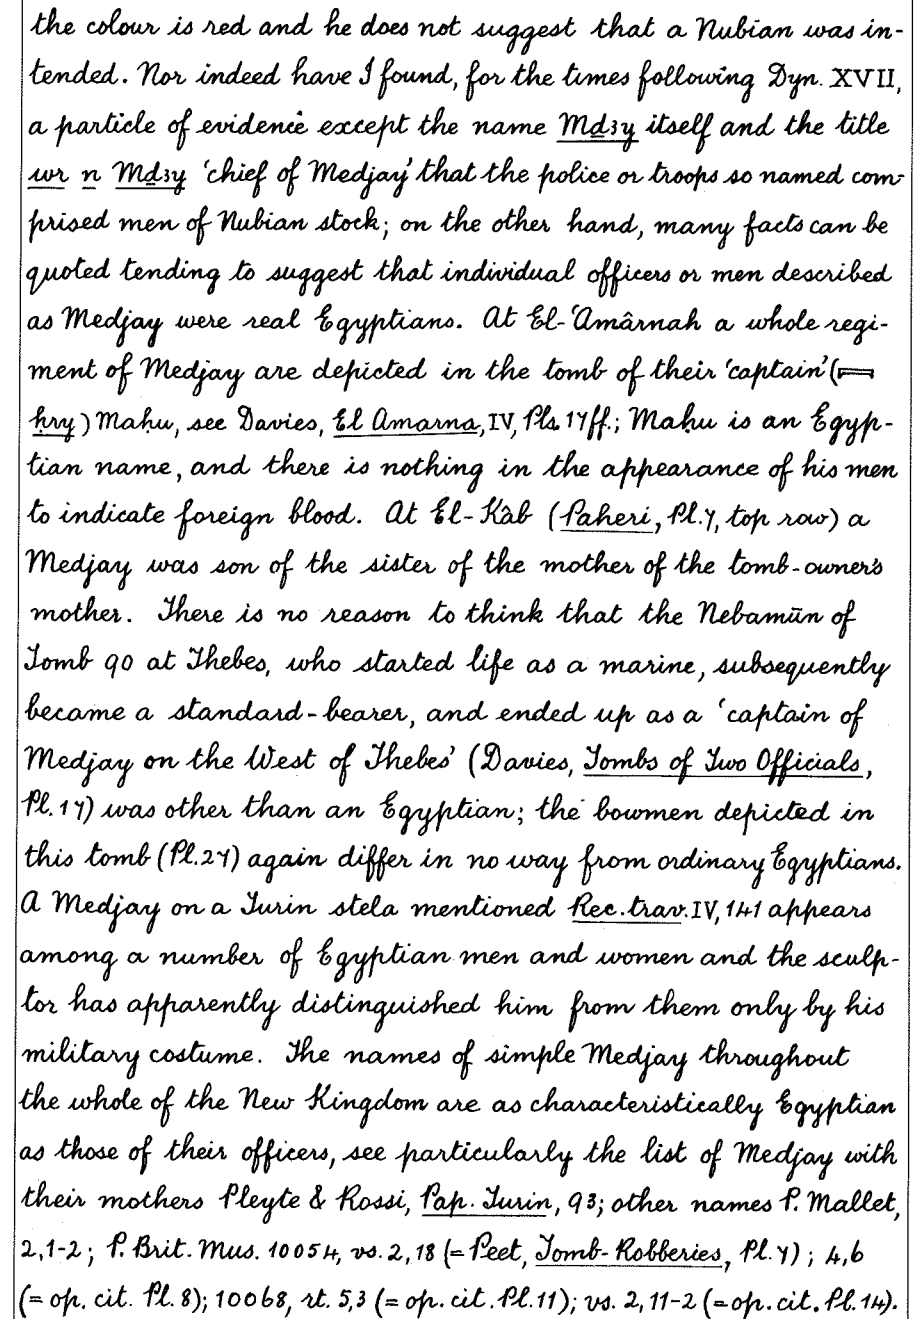 the colour is red and he does not suggest that a Nubian was in-
tended. Nor indeed have I found, for the times following Dyn. XVII,
a particle of evidence except the name Mḏꜣy itself and the title
wr n Mḏꜣy 'chief of Medjay' that the police or troops so named com-
prised men of Nubian stock; on the other hand, many facts can be
quoted tending to suggest that individual officers or men described
as Medjay were real Egyptians. At El-'Amârnah a whole regi-
ment of Medjay are depicted in the tomb of their 'captain' (
ḥry) Maḥu, see Davies, El Amarna, IV, Pls. 17ff.; Maḥu is an Egyp-
tian name, and there is nothing in the appearance of his men
to indicate foreign blood. At El-Kâb (Paheri, Pl.7, top row) a
Medjay was son of the sister of the mother of the tomb-owner's
mother. There is no reason to think that the Nebamūn of
Tomb 90 at Thebes, who started life as a marine, subsequently
became a standard-bearer, and ended up as a 'captain of
Medjay on the West of Thebes' (Davies, Tombs of Two Officials,
Pl.17) was other than an Egyptian; the bowmen depicted in
this tomb (Pl.27) again differ in no way from ordinary Egyptians.
A Medjay on a Turin stela mentioned Rec.trav. IV, 141 appears
among a number of Egyptian men and women and the sculp-
tor has apparently distinguished him from them only by his
military costume. The names of simple Medjay throughout
the whole of the New Kingdom are as characteristically Egyptian
as those of their officers, see particularly the list of Medjay with
their mothers Pleyte & Rossi, Pap. Turin, 93; other names P. Mallet,
2,1-2; P. Brit. Mus. 10054, vs. 2,18 (= Peet, Tomb-Robberies, Pl.7); 4,6
(= op. cit. Pl. 8); 10068, rt. 5,3 (= op. cit. Pl. 11); vs. 2, 11-2 (= op. cit. Pl. 14).